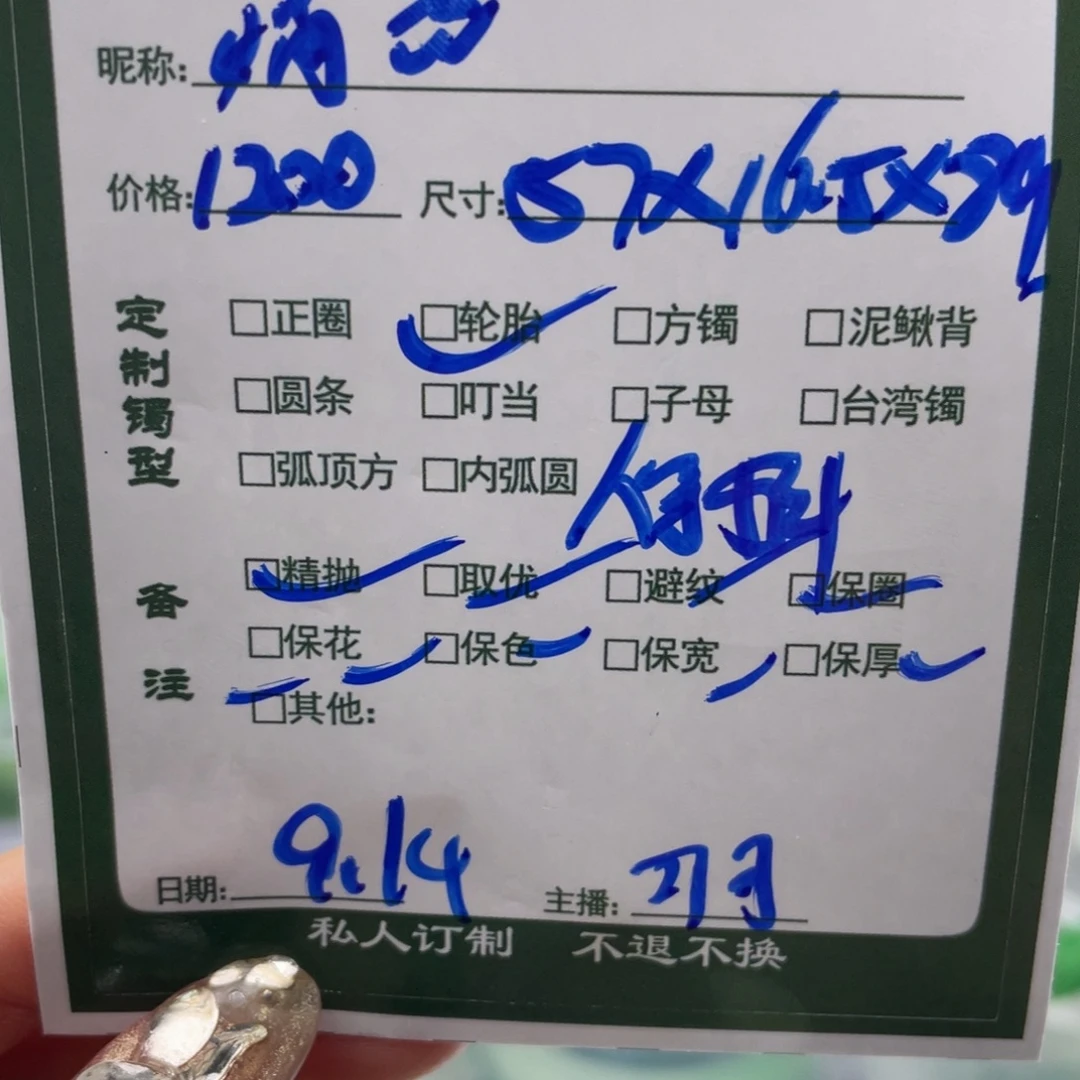 昵称:
价格:1200 尺寸:57X16.5X
定制镯型
□正圈 □轮胎 □方镯 □泥鳅背
□圆条 □叮当 □子母 □台湾镯
□弧顶方 □内弧圆
备注
□精抛 □取优 □避纹 □保圈
□保花 □保色 □保宽 □保厚
□其他:
日期:9.14 主播:
私人订制 不退不换